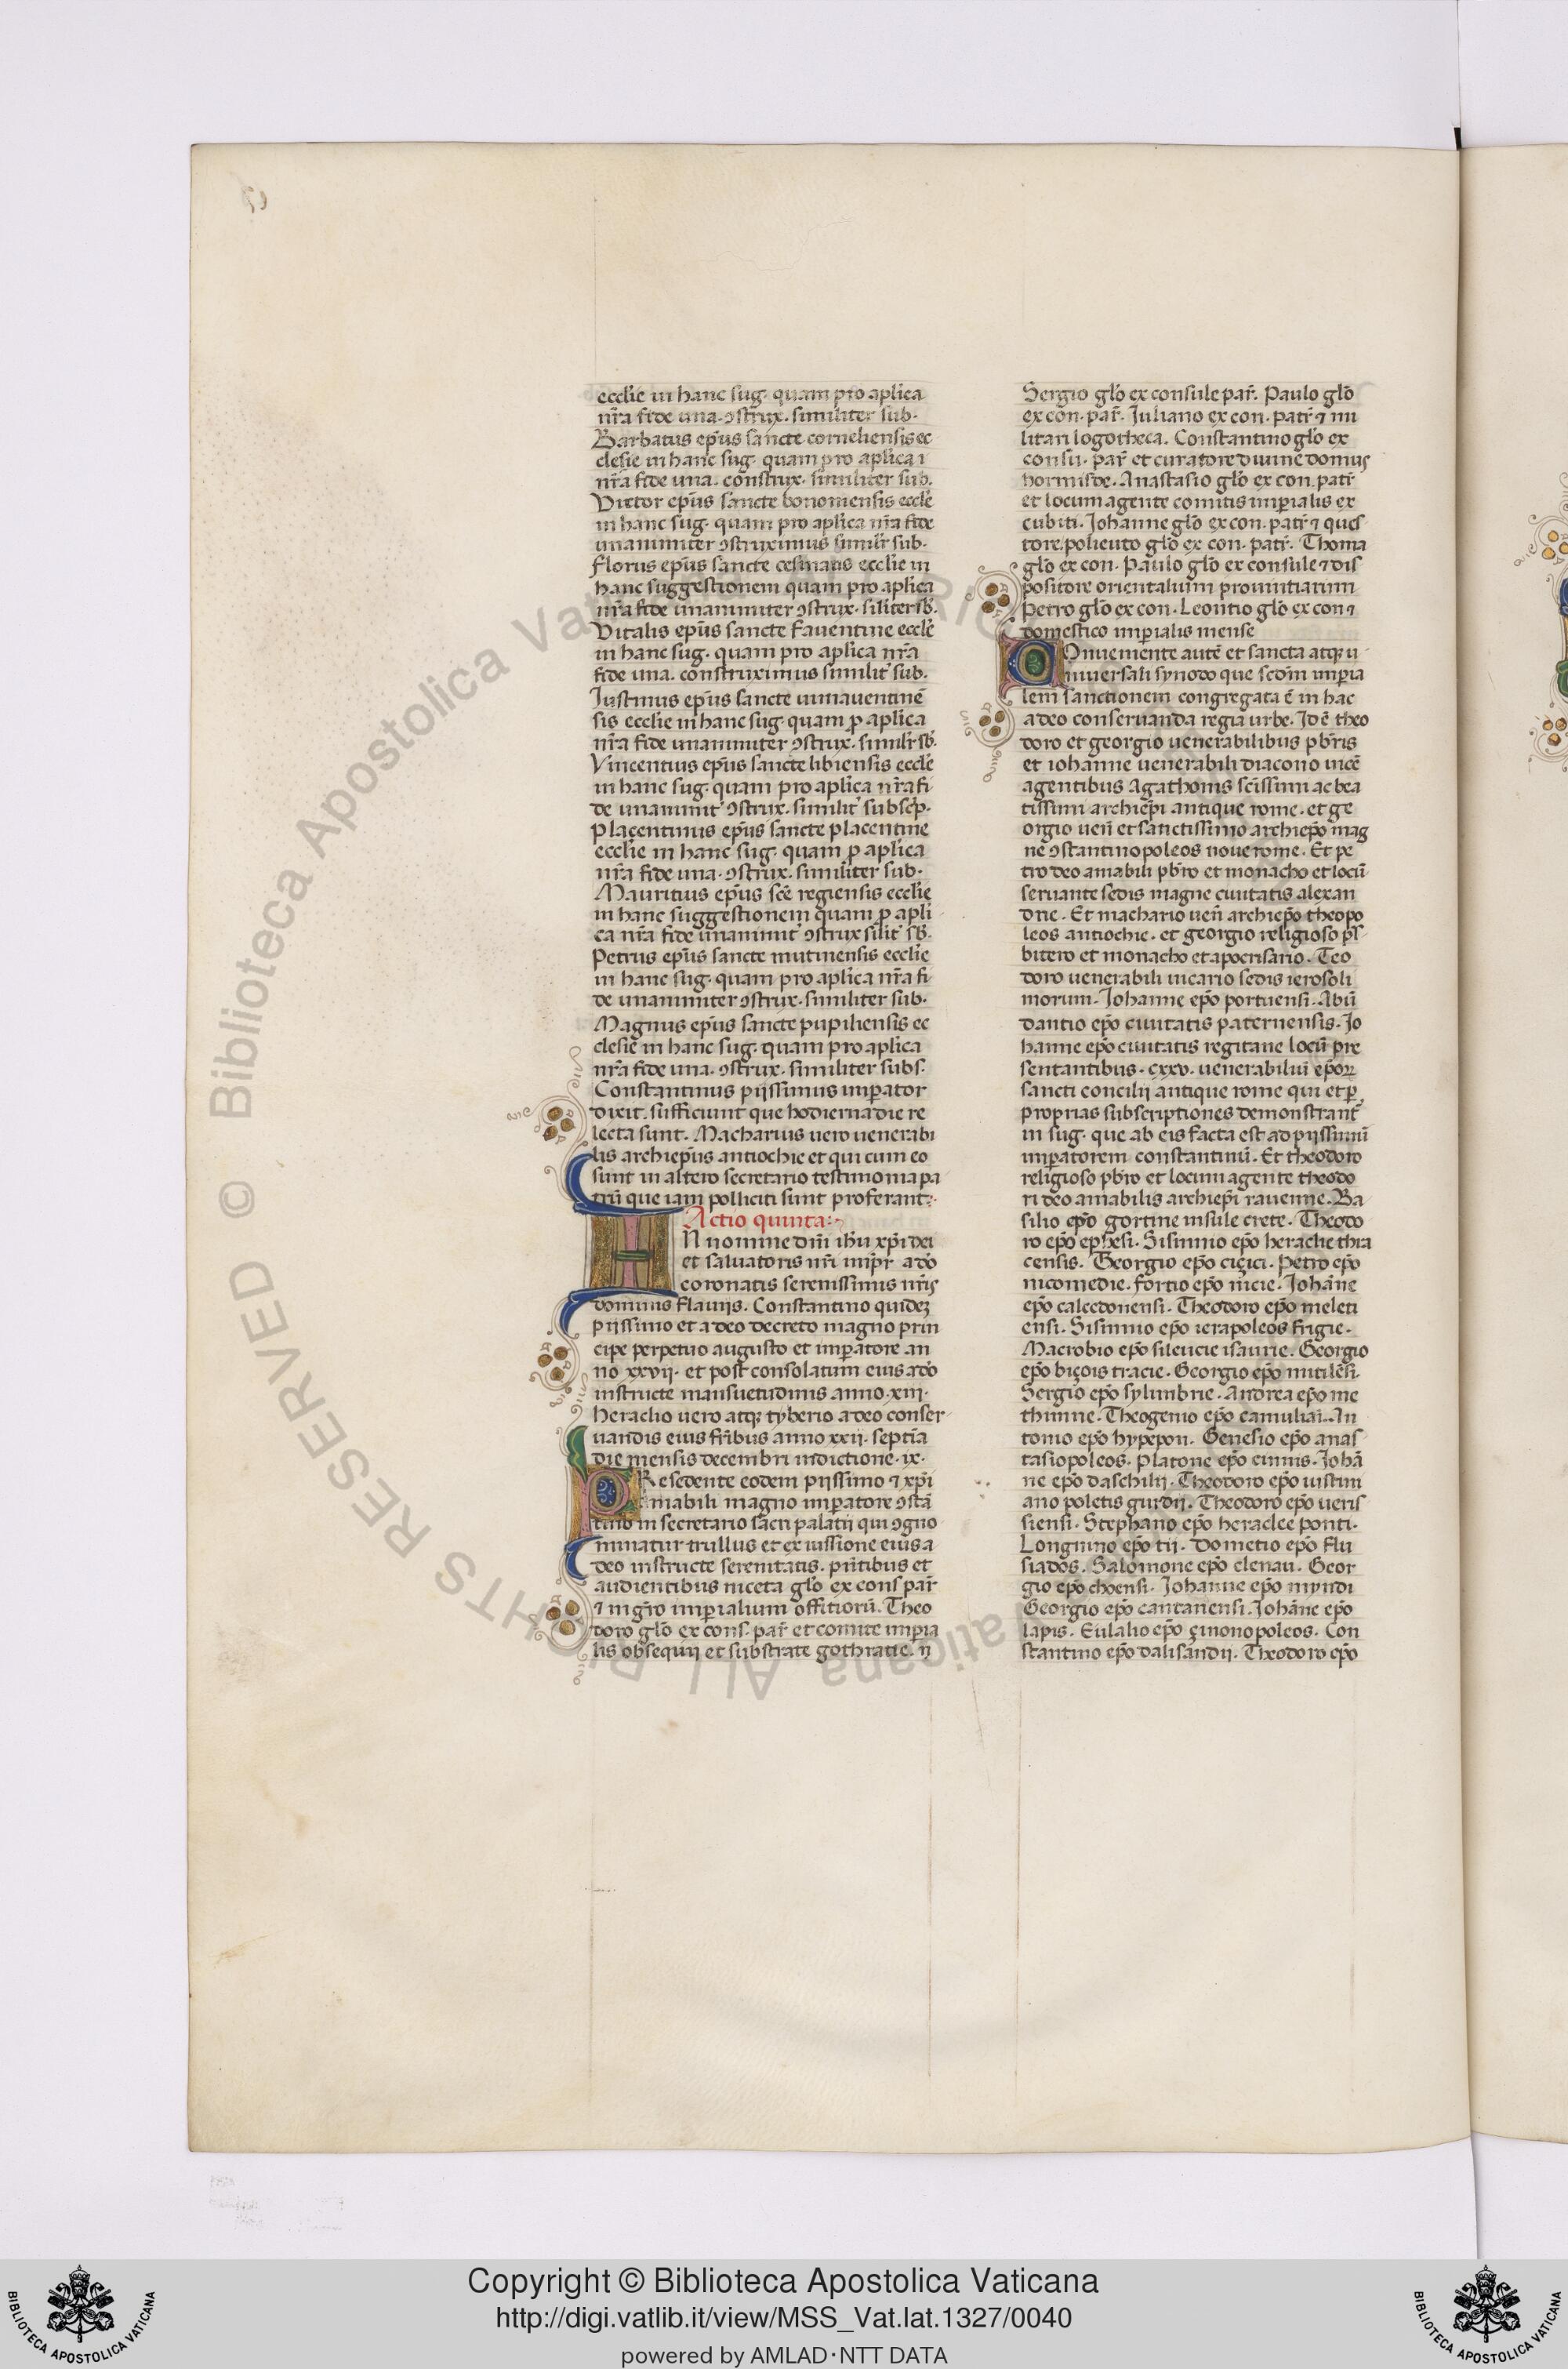 ecclie in hanc sug. quam pro aplica
nr̃a fide una. ꝯstrux. similiter sub.
Barbatus ep̃us sancte corneliensis ec
clesie in hanc sug. quam pro aplica
nr̃a fide una. construx. similiter sub.
Victor ep̃us sancte bononiensis eccle
in hanc sug. quam pro aplica nr̃a fide
unanimiter ꝯstruximus simil̃r sub.
Florus ep̃us sancte cesinatis ecclie in
hanc suggestionem quam pro aplica
nr̃a fide unanimiter ꝯstrux. siliter sb̃.
Vitalis ep̃us sancte faventine eccle
in hanc sug. quam pro aplica nr̃a
fide una. construximus similit̃ sub.
Iustinus ep̃us sancte uinauentinẽ
sis ecclie in hanc sug. quam ꝓ aplica
nr̃a fide unanimiter ꝯstrux. simil̃r sb̃.
Vincentius ep̃us sancte libiensis eccle
in hanc sug. quam pro aplica nr̃a fi
de unanimit̃ ꝯstrux. similit̃ subscp̃.
Placentinus ep̃us sancte placentine
ecclie in hanc sug. quam ꝓ aplica
nr̃a fide una. ꝯstrux. similiter sub.
Mauritius ep̃us scẽ regiensis ecclie
in hanc suggestionem quam ꝓ apli
ca nr̃a fide unanimit̃ ꝯstrux silit̃ sb̃.
Petrus ep̃us sancte mutinensis ecclie
in hanc sug. quam pro aplica nr̃a fi
de unanimiter ꝯstrux. similiter sub.
Magnus ep̃us sancte pupiliensis ec
clesie in hanc sug. quam pro aplica
nr̃a fide una. ꝯstrux. similiter subs.
Constantinus piissimus imꝑator
dixit. sufficiunt que hodierna die re
lecta sunt. Macharius uero uenerabi
lis archiep̃us antiochie et qui cum eo
sunt in altero secretario testimonia pa
trũ que iam polliciti sunt proferant:
Actio quinta:
IN nomine dñi ihũ xp̃i dei
et saluatoris nr̃i imꝑr̃ a dõ
coronatis serenissimus nr̃is
dominis flauiis. Constantino quidez
piissimo et a deo decreto magno prin
cipe perpetuo augusto et imꝑatore an
no xxvii. et post consolatum eius a dõ
instructe mansuetudinis anno .xiii.
heraclio uero atqꝫ tyberio a deo conser
uandis eius fr̃ibus anno xxii. septĩa
die mensis decembri indictione .ix.
PResedente eodem piissimo ⁊ xp̃i
amabili magno imꝑatore ꝯstã
tino in secretario sacri palatii qui ꝯgno
minatur trullus et ex iussione eius a
deo instructe serenitatis. pñtibus et
audientibus niceta glõ ex cons par̃
⁊ mgr̃o imꝑialium offitiorũ. Theo
doro glõ ex cons. par̃ et comite imꝑia
lis obsequii et substrate gothratie. ij
Sergio glõ ex consule par̃. Paulo glõ
ex con. par̃. Iuliano ex con. patr̃ ⁊ mi
litari logotheca. Constantino glõ ex
consu. par̃ et curatore diuine domus
hormisde. Anastasio glõ ex con. patr̃
et locum agente comitis imꝑialis ex
cubiti. Iohanne glõ ex con. patr̃ ⁊ ques
tore. polieuto glõ ex con. patr̃. Thoma
glõ ex con. Paulo glõ ex consule ⁊ dis
positore orientalium prouintiarum
Petro glõ ex con. Leontio glõ ex con ⁊
domestico imꝑialis mense
COnueniente autẽ et sancta atqꝫ u
niuersali synodo que scdm̃ imꝑia
lem sanctionem congregata ẽ in hac
a deo conseruanda regia urbe. Id ẽ theo
doro et georgio uenerabilibus pb̃ris
et iohanne uenerabili diacono uicẽ
agentibus Agathonis scĩssimi ac bea
tissimi archiep̃i antique rome. et ge
orgio ueñ et sanctissimo archiep̃o mag
ne ꝯstantinopoleos noue rome. Et pe
tro deo amabili pb̃ro et monacho et locũ
seruante sedis magne ciuitatis alexan
drie. Et machario ueñ archiep̃o theopo
leos antiochie. et georgio religioso ps̃
bitero et monacho et apocrisario. Teo
doro uenerabili uicario sedis ierosoli
morum. Iohanne ep̃o portuensi. Abũ
dantio ep̃o ciuitatis paternensis. Io
hanne ep̃o ciuitatis regitane locũ pre
sentantibus .cxxv. uenerabiliũ ep̃oꝝ
sancti concilii antique rome qui et ꝑ
proprias subscriptiones demonstrant̃
in sug. que ab eis facta est ad piissimũ
imꝑatorem constantinũ. Et theodoro
religioso pb̃ro et locum agente theodo
ri deo amabilis archiep̃i rauenne. Ba
silio ep̃o gortine insule crete. Theodo
ro ep̃o ephesi. Sisinnio ep̃o heraclie thra
censis. Georgio ep̃o ciçici. Petro ep̃o
nicomedie. fortio ep̃o nicie. Iohãne
ep̃o calcedonensi. Theodoro ep̃o meleti
ensi. Sisinnio ep̃o ierapoleos frigie.
Macrobio ep̃o sileucie isaurie. Georgio
ep̃o biçois tracie. Georgio ep̃o mitilẽsi.
Sergio ep̃o sylimbrie. Andrea ep̃o me
thinne. Theogenio ep̃o camuliai. An
tonio ep̃o hypepon. Genesio ep̃o anas
tasiopoleos. Platone ep̃o cinnis. Iohã
ne ep̃o daschilii. Theodoro ep̃o iustini
ano poletis gurdii. Theodoro ep̃o ueris
siensi. Stephano ep̃o heraclee ponti.
Longinno ep̃o tii. Dometio ep̃o flu
siados. Salomone ep̃o clenau. Geor
gio ep̃o choensi. Iohanne ep̃o myndi
Georgio ep̃o cantanensi. Iohãne ep̃o
lapis. Eulalio ep̃o çinonopoleos. Con
stantino ep̃o dalisandii. Theodoro ep̃o
© Biblioteca Apostolica Vaticana ALL RIGHTS RESERVED
Copyright © Biblioteca Apostolica Vaticana
http://digi.vatlib.it/view/MSS_Vat.lat.1327/0040
powered by AMLAD·NTT DATA
BIBLIOTECA APOSTOLICA VATICANA
BIBLIOTECA APOSTOLICA VATICANA